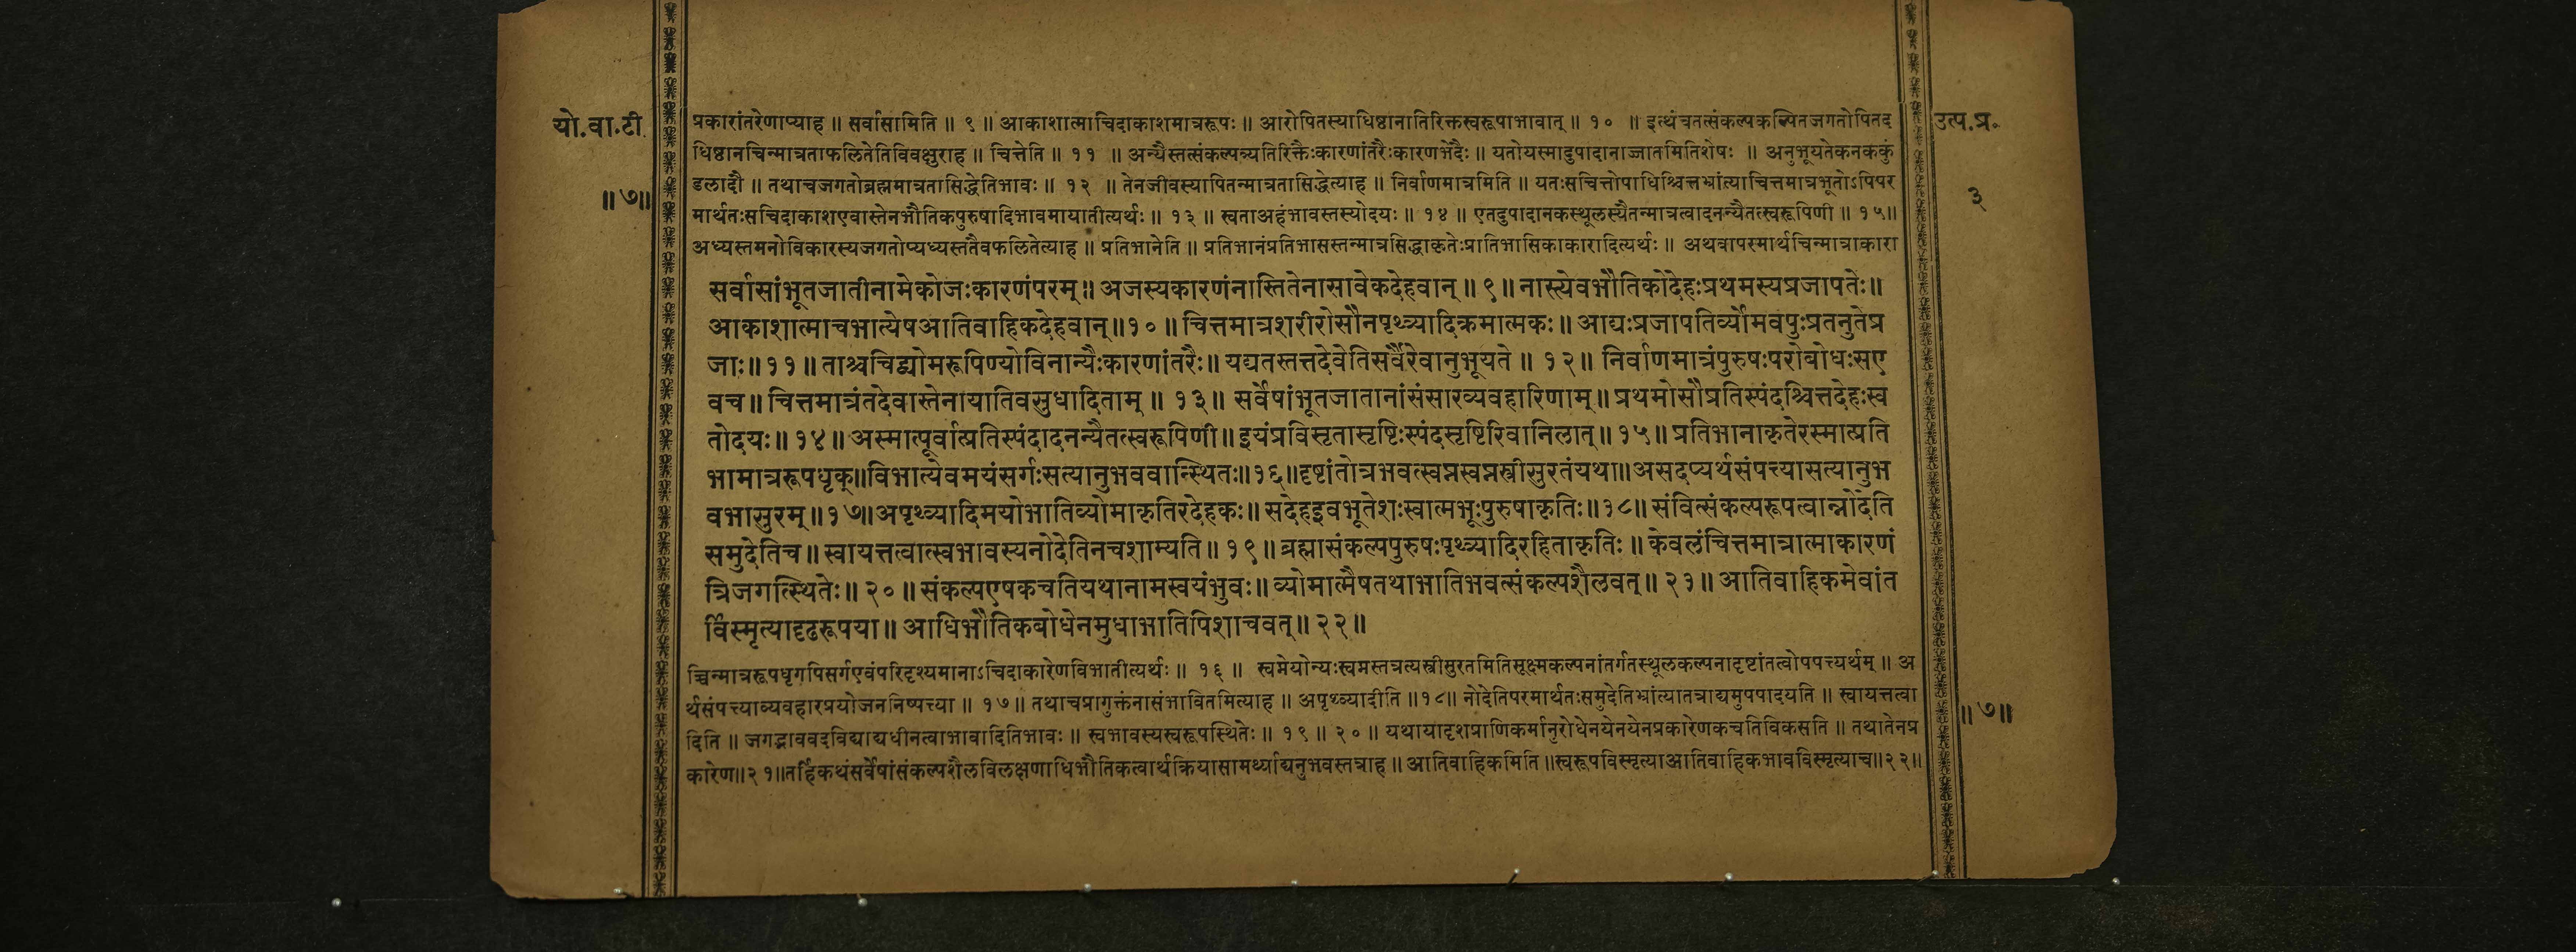 यो.वा.टी
॥७॥
प्रकारांतरेणाप्याह ॥ सर्वासामिति ॥ ९ ॥ आकाशात्माचिदाकाशमात्ररूपः ॥ आरोपितस्याधिष्ठानातिरिक्तस्वरूपाभावात् ॥ १० ॥ इत्थंचतत्संकल्पकल्पितजगतोपितद
धिष्ठानचिन्मात्रताफलितेतिविवक्षुराह ॥ चित्तेति ॥ ११ ॥ अन्यैस्तत्संकल्पव्यतिरिक्तैःकारणांतरैःकारणभेदैः ॥ यतोयस्मादुपादानाज्जातमितिशेषः ॥ अनुभूयतेकनककुं
डलादौ ॥ तथाचजगतोब्रह्ममात्रतासिद्धेतिभावः ॥ १२ ॥ तेनजीवस्यापितन्मात्रतासिद्धेत्याह ॥ निर्वाणमात्रमिति ॥ यतःसचित्तोपाधिश्चित्तभ्रांत्याचित्तमात्रभूतोऽपिपर
मार्थतःसचिदाकाशएवास्तेनभौतिकपुरुषादिभावमायातीत्यर्थः ॥ १३ ॥ स्वताअहंभावस्तस्योदयः ॥ १४ ॥ एतदुपादानकस्थूलस्यैतन्मात्रत्वादनन्यैतत्स्वरूपिणी ॥ १५॥
अध्यस्तमनोविकारस्यजगतोप्यध्यस्ततैवफलितेत्याह ॥ प्रतिभानेति ॥ प्रतिभानंप्रतिभासस्तन्मात्रसिद्धाकृतेःप्रातिभासिकाकारादित्यर्थः ॥ अथवापरमार्थचिन्मात्राकारा
सर्वासांभूतजातीनामेकोजःकारणंपरम् ॥ अजस्यकारणंनास्तितेनासावेकदेहवान् ॥ ९ ॥ नास्त्येवभौतिकोदेहःप्रथमस्यप्रजापतेः ॥
आकाशात्माचभात्येषआतिवाहिकदेहवान् ॥१०॥ चित्तमात्रशरीरोसौनपृथ्व्यादिक्रमात्मकः ॥ आद्यःप्रजापतिर्व्योमवपुःप्रतनुतेप्र
जाः ॥ ११ ॥ ताश्चचिद्व्योमरूपिण्योविनान्यैःकारणांतरैः ॥ यद्यतस्तत्तदेवेतिसर्वैरेवानुभूयते ॥ १२ ॥ निर्वाणमात्रंपुरुषःपरोबोधःसए
वच ॥ चित्तमात्रंतदेवास्तेनायातिवसुधादिताम् ॥ १३॥ सर्वेषांभूतजातानांसंसारव्यवहारिणाम् ॥ प्रथमोसौप्रतिस्पंदश्चित्तदेहःस्व
तोदयः ॥ १४ ॥ अस्मात्पूर्वात्प्रतिस्पंदादनन्यैतत्स्वरूपिणी ॥ इयंप्रविसृतासृष्टिःस्पंदसृष्टिरिवानिलात् ॥ १५॥ प्रतिभानाकृतेरस्मात्प्रति
भामात्ररूपधृक् ॥ विभात्येवमयंसर्गःसत्यानुभववान्स्थितः ॥१६॥ दृष्टांतोत्रभवत्स्वप्नस्वप्नस्त्रीसुरतंयथा ॥ असदप्यर्थसंपत्त्यासत्यानुभ
वभासुरम् ॥ १७॥ अपृथ्व्यादिमयोभातिव्योमाकृतिरदेहकः ॥ सदेहइवभूतेशःस्वात्मभूःपुरुषाकृतिः ॥१८॥ संवित्संकल्परूपत्वान्नोदेति
समुदेतिच ॥ स्वायत्तत्वात्स्वभावस्यनोदेतिनचशाम्यति ॥ १९ ॥ ब्रह्मासंकल्पपुरुषःपृथ्व्यादिरहिताकृतिः ॥ केवलंचित्तमात्रात्माकारणं
त्रिजगत्स्थितेः ॥ २० ॥ संकल्पएषकचतियथानामस्वयंभुवः ॥ व्योमात्मैषतथाभातिभवत्संकल्पशैलवत् ॥ २१ ॥ आतिवाहिकमेवांत
र्विस्मृत्यादृढरूपया ॥ आधिभौतिकबोधेनमुधाभातिपिशाचवत् ॥ २२ ॥
च्चिन्मात्ररूपधृगपिसर्गएवंपरिदृश्यमानाऽचिदाकारेणविभातीत्यर्थः ॥ १६ ॥ स्वप्नेयोन्यःस्वप्नस्तत्रत्यस्त्रीसुरतमितिसूक्ष्मकल्पनांतर्गतस्थूलकल्पनादृष्टांतत्वोपपत्त्यर्थम् ॥ अ
र्थसंपत्त्याव्यवहारप्रयोजननिष्पत्त्या ॥ १७ ॥ तथाचप्रागुक्तंनासंभावितमित्याह ॥ अपृथ्व्यादीति ॥१८॥ नोदेतिपरमार्थतःसमुदेतिभ्रांत्यातत्राद्यमुपपादयति ॥ स्वायत्तत्वा
दिति ॥ जगद्भाववदविद्याद्यधीनत्वाभावादितिभावः ॥ स्वभावस्यस्वरूपस्थितेः ॥ १९ ॥ २० ॥ यथायादृशप्राणिकर्मानुरोधेनयेनयेनप्रकारेणकचतिविकसति ॥ तथातेनप्र
कारेण॥२१॥तर्हिकथंसर्वेषांसंकल्पशैलविलक्षणाधिभौतिकत्वार्थक्रियासामर्थ्याद्यनुभवस्तत्राह ॥ आतिवाहिकमिति ॥स्वरूपविस्मृत्याआतिवाहिकभावविस्मृत्याच॥२२॥
उत्प.प्र.
३
॥७॥